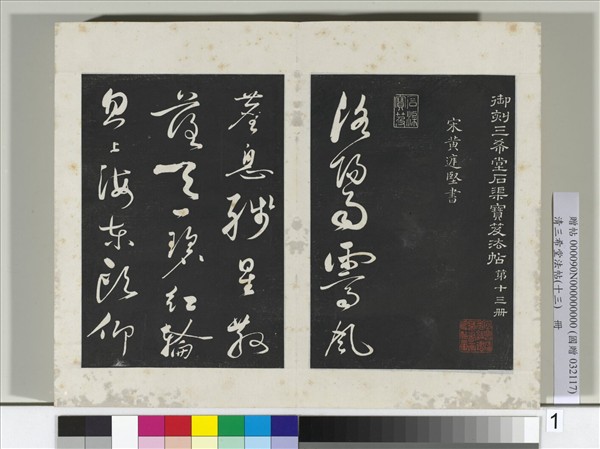 御刻三希堂石渠寶笈法帖 第十三冊
宋黃庭堅書
石渠寶笈
洛陽雨霽風
塵息殘星散
落天一碧紅輪
忽上海東頭仰
贈帖 000090N000000000 (國贈 032117)
清三希堂法帖(十三) 冊
1